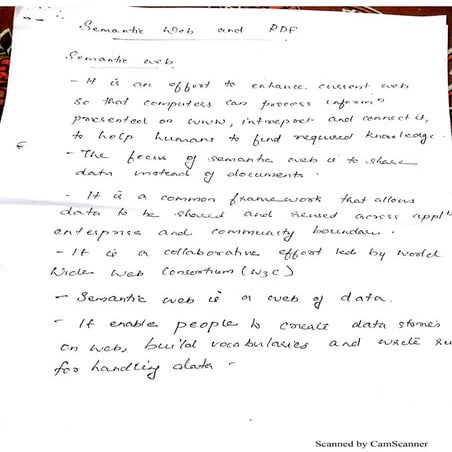 Semantic Web and RDF
Semantic web
- It is an effort to enhance current web
so that computers can process informn
presented on WWW, intrepret and connect it,
to help humans to find required knowledge.
- The focus of semantic web is to share
data instead of documents.
- It is a common framework that allows
data to be shared and reused across appl
enterprise and community boundaries.
- It is a collaborative effort led by World
Wide Web Consortium (W3C)
- Semantic web is a web of data.
- It enable people to create data stores
on web, build vocabularies and write ru
for handling data.
Scanned by CamScanner